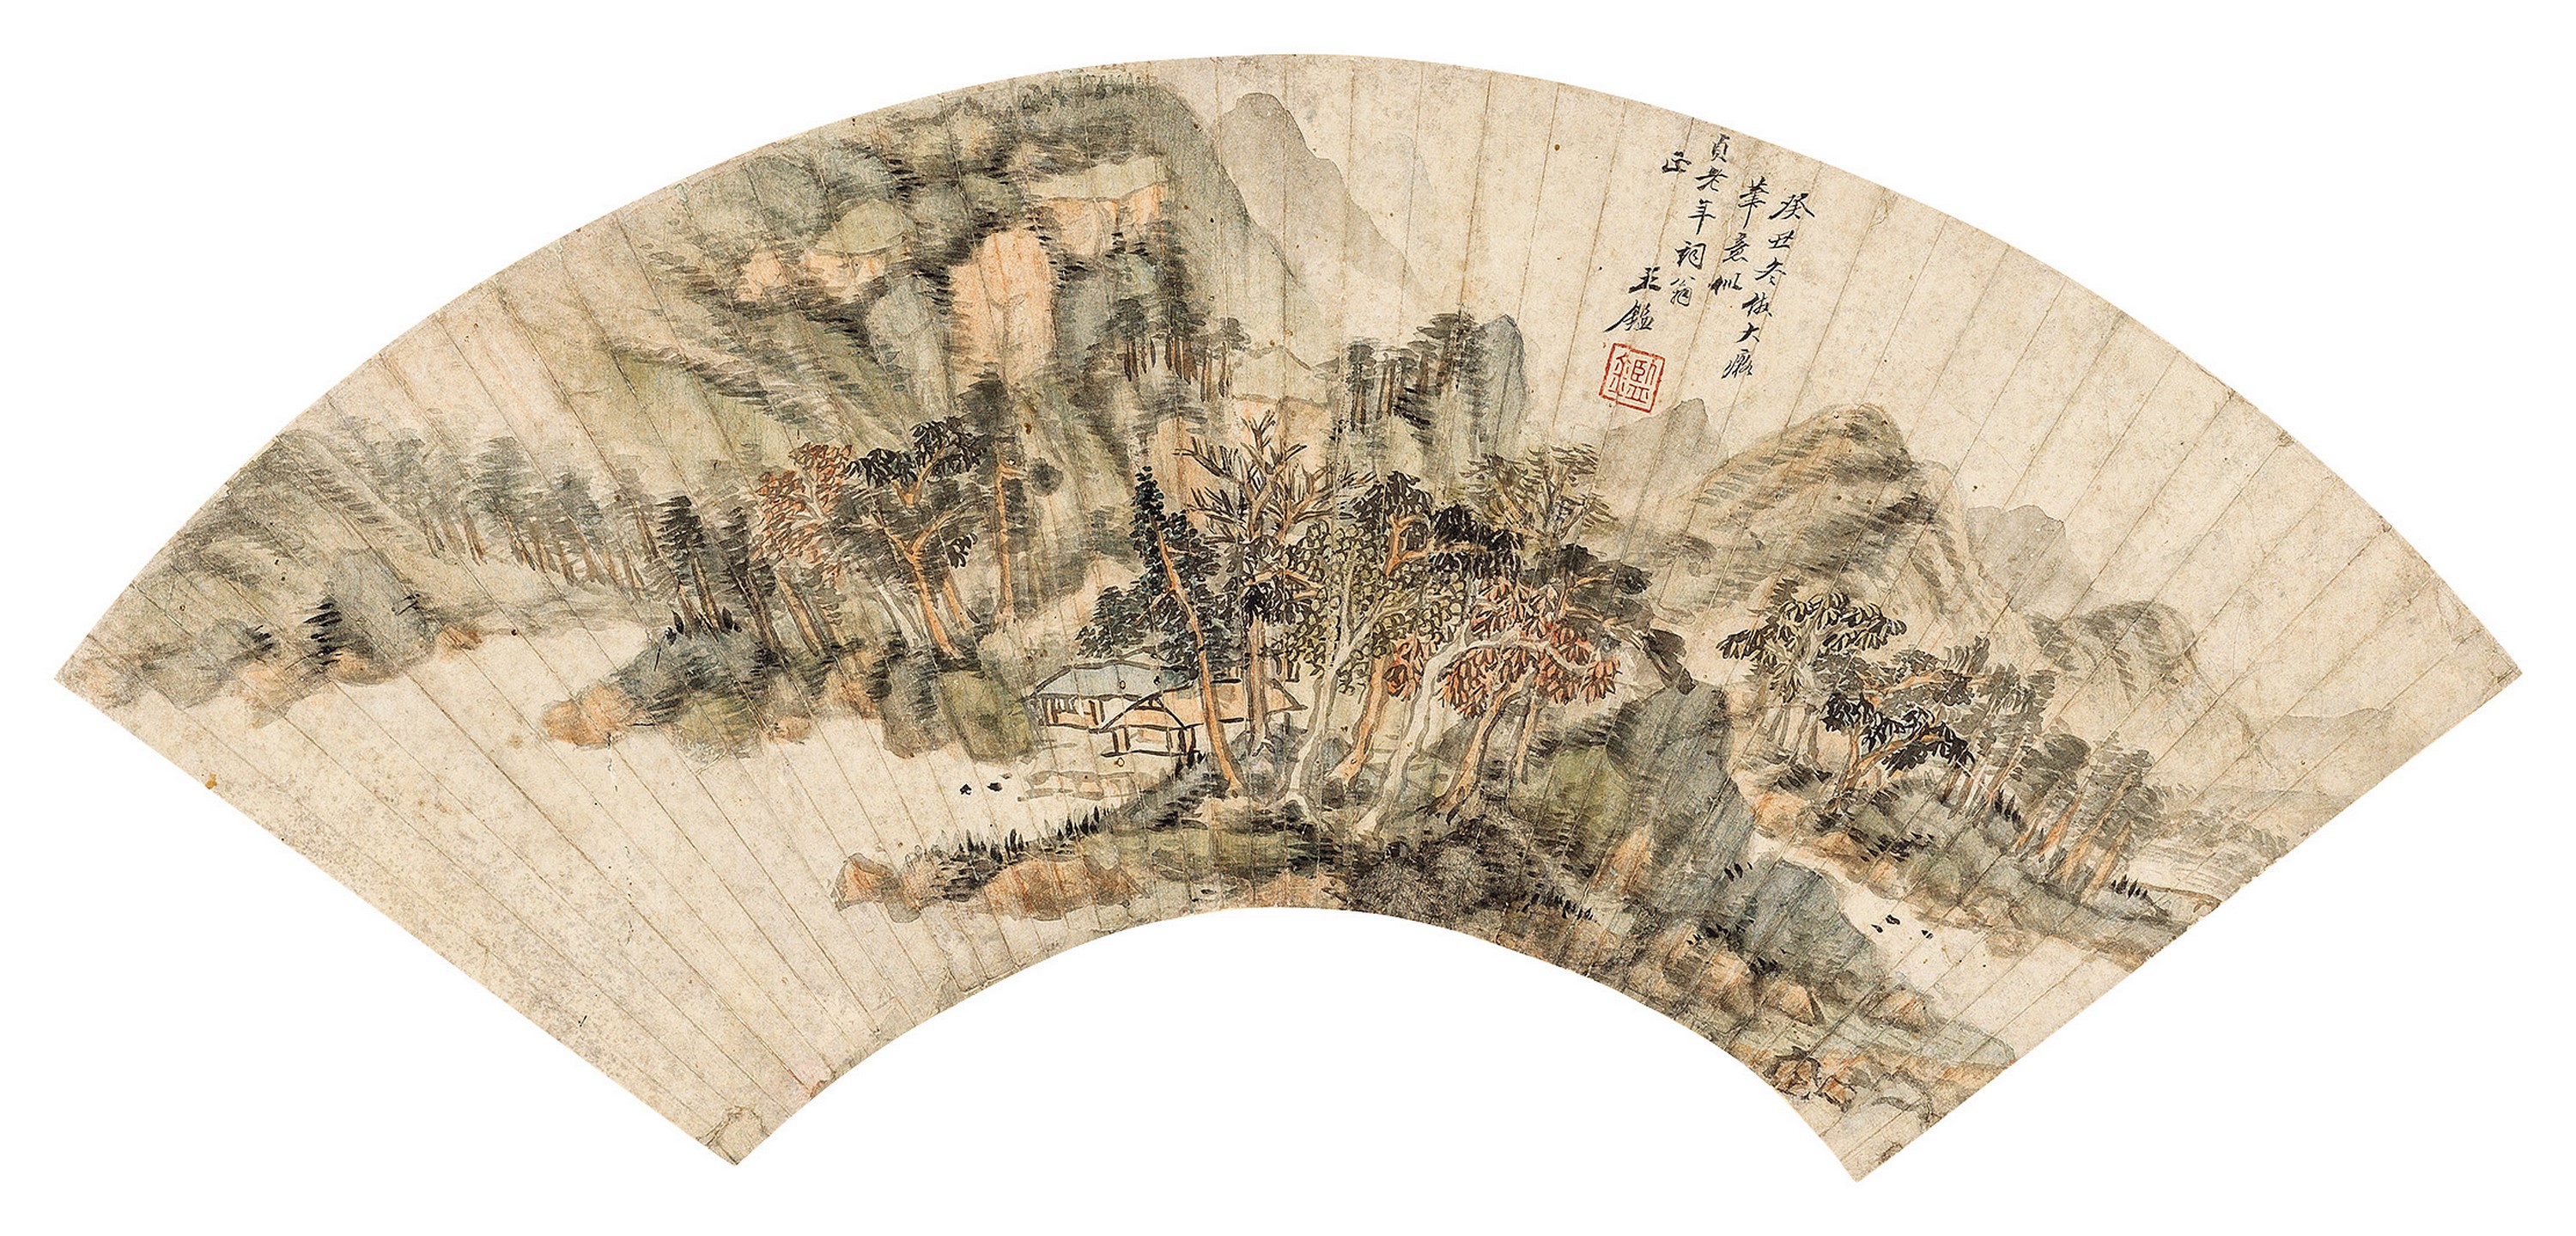 癸丑冬倣大癡
筆意似
貞老年詞翁
正
王鑑
鑑